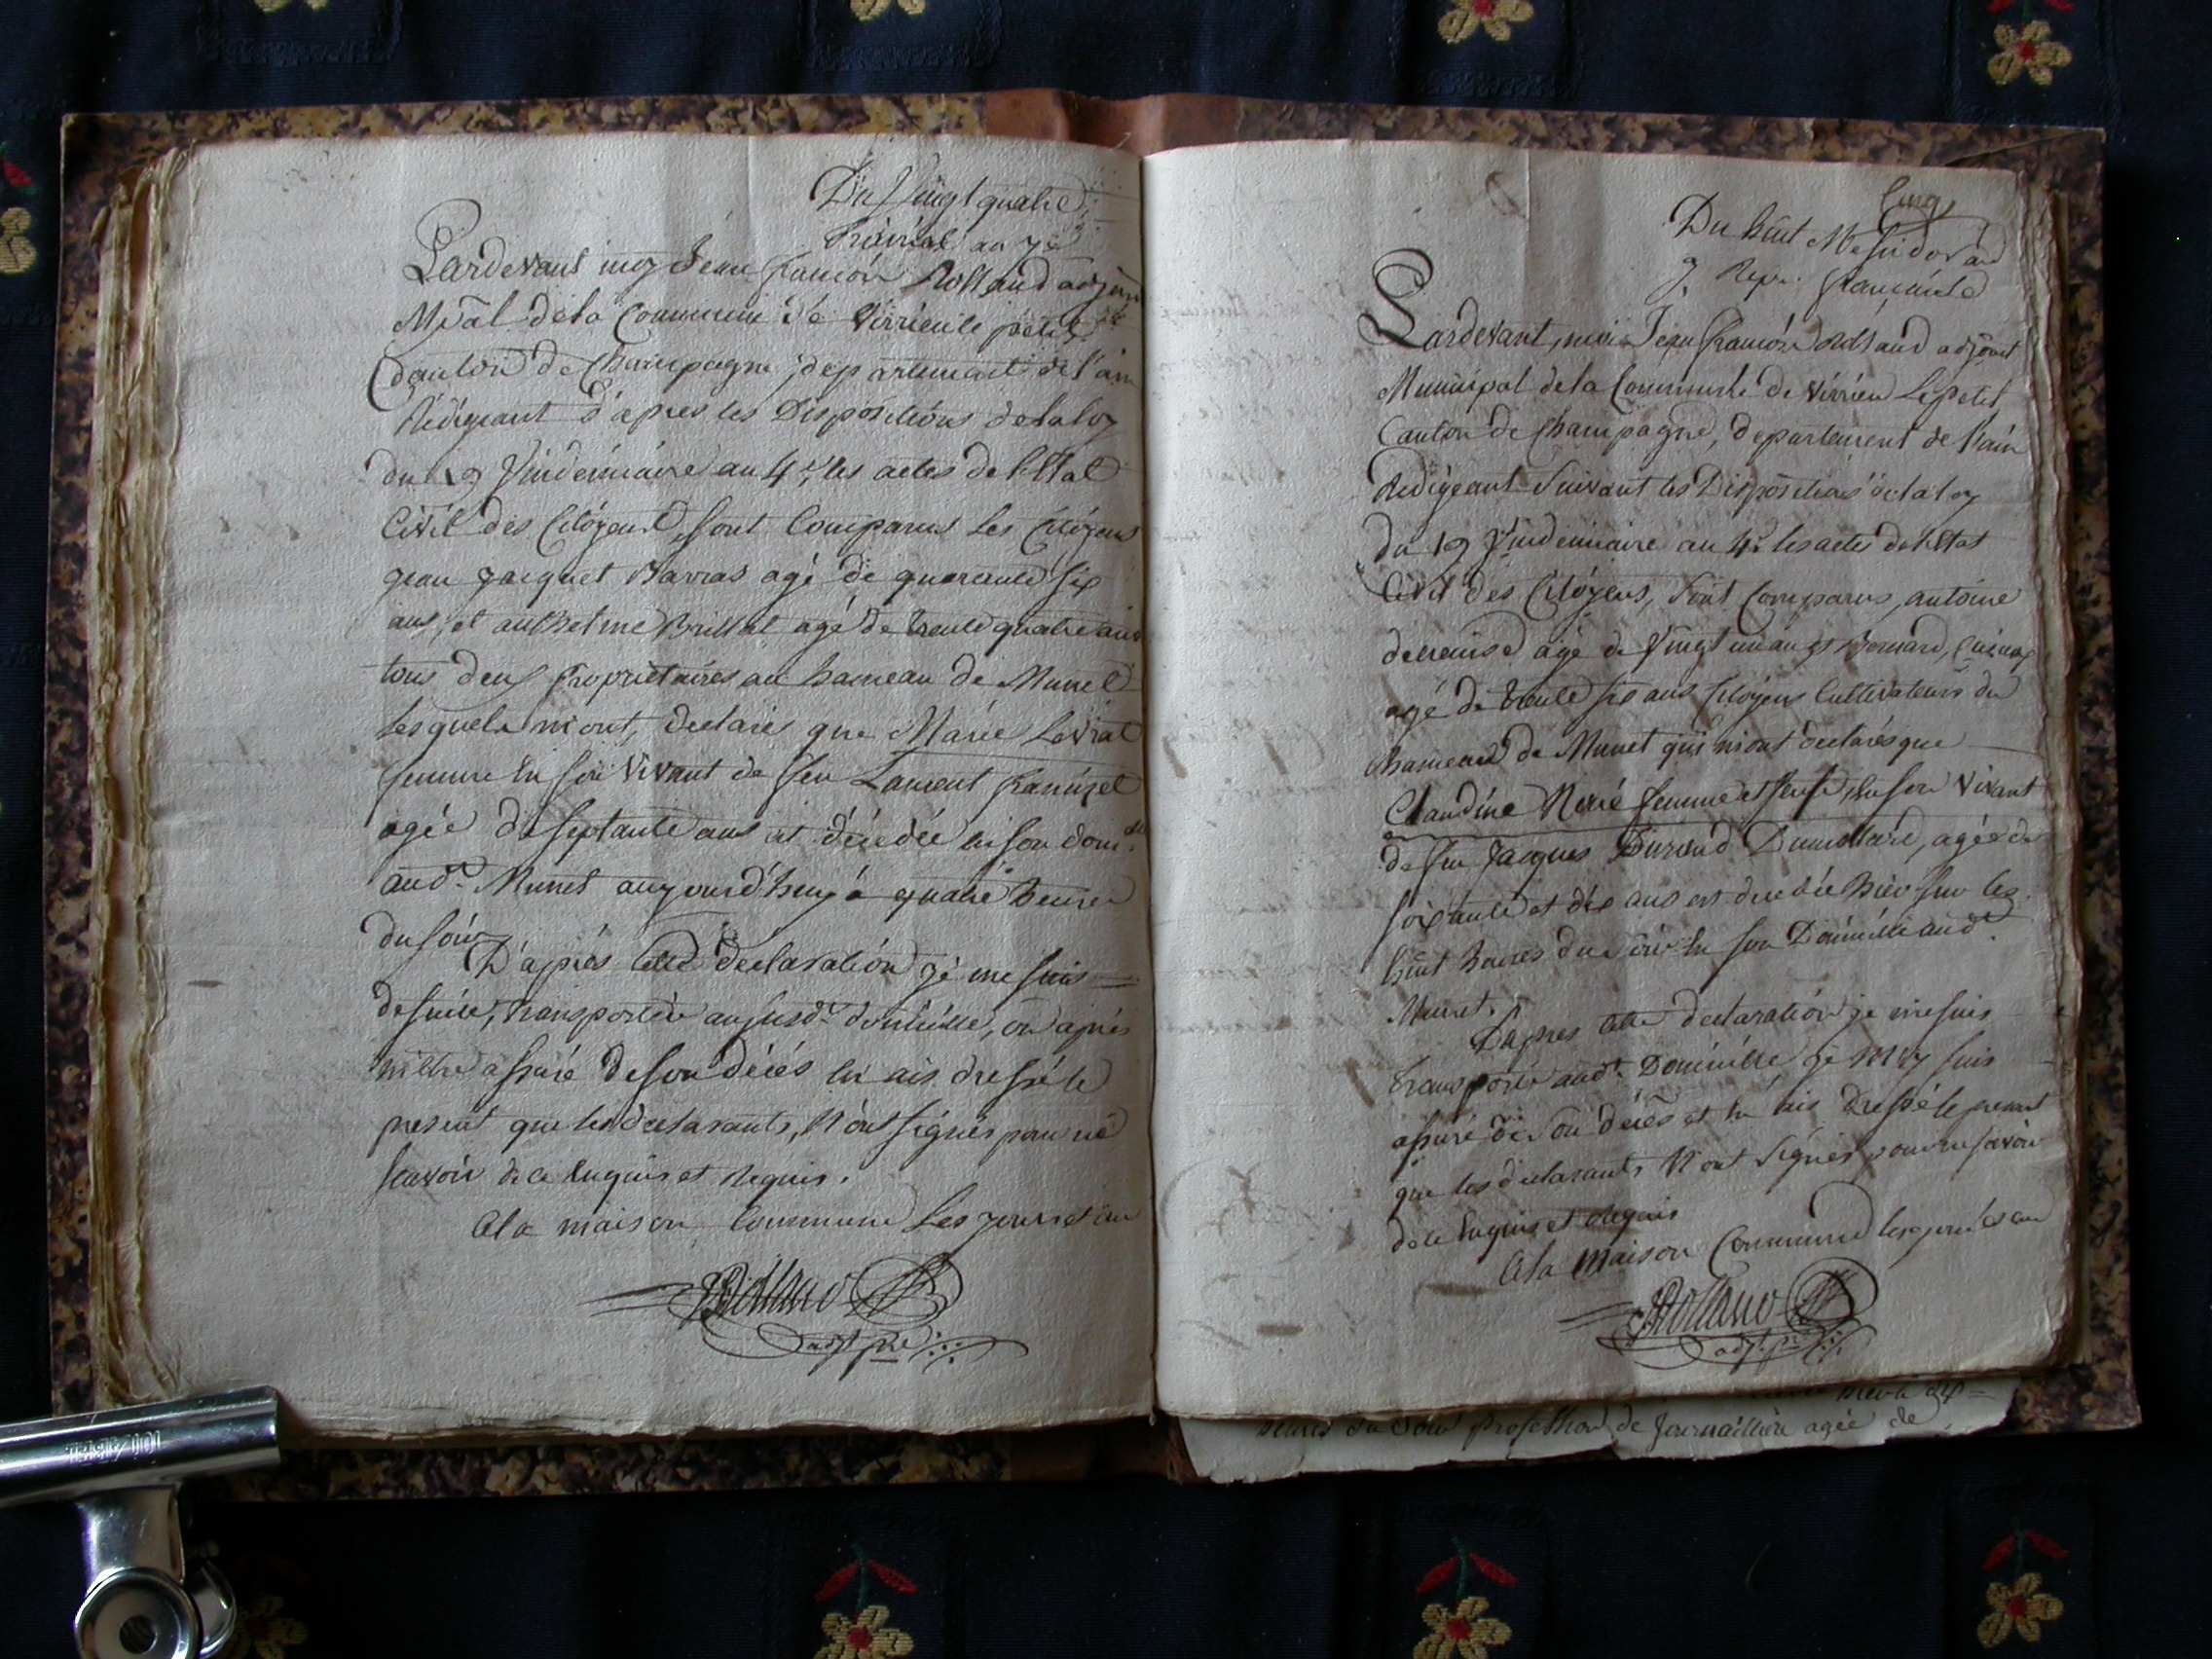 Du Vingt quatre
Prairial an 7e
Pardevant moy Jean francois Rolland adjoint
Mpal de la Commune de Virrieu le petit
Canton de Champagne, departement de l'ain
Rédigeant d'apres les Dispositions de la loy
du 19 Vindemiaire an 4e, les actes de l'Etat
Civil des Citoyens, sont Comparus les Citoyens
jean jacquet Barras agé de quarante six
ans, et anthelme Brillat agé de trente quatre ans
tous deux proprietaires au hameau de Munet
lesquels m'ont, declarés que Marie Levrat
femme en son vivant de feu Laurent francizet
agée de septante ans est décédée en son dom.le
aud.t Munet aujourd'huy à quatre heures
du soir
D'après cette declaration je me suis
desuite, transportée au susd.t domicille, où après
m'être assuré de son décés en ais dressé le
present que les declarants, N'ont signés pour ne
scavoir de ce Enquis et Requis.
A la maison Commune Les jours et an
JRolland
adjt pal
Cinq
Du huit Messidor an
7 Repu. francaise
Pardevant, moi Jean francois Rolland adjoint
Municipal de la Commune de Virrieu Le petit
Canton de Champagne, departement de l'ain
Redigeant Suivant les Dispositions de la loy
du 19 Vindemiaire an 4e les actes de l'Etat
Civil des Citoyens, sont Comparus, antoine
agé de Vingt un ans et Bernard,
agé de trente six ans Citoyens Cultivateurs du
hameau de Munet qui m'ont declarés que
Claudine femme et en son Vivant
de feu Jacques Durand Dumollard, agée de
soixante et dix ans est decedée hier sur les
huit heures du soir en son Domicille aud.t
Munet.
D'apres cette declaration je me suis
transporté aud.t Domicille je m'y suis
assuré de son décès et en ais Dressé le present
que les declarants N'ont Signés pour ne savoir
de ce Enquis et Requis
A la Maison Commune les jours et an
JRolland
adjt. pal
heures du Soir profession de Journaillière agée de